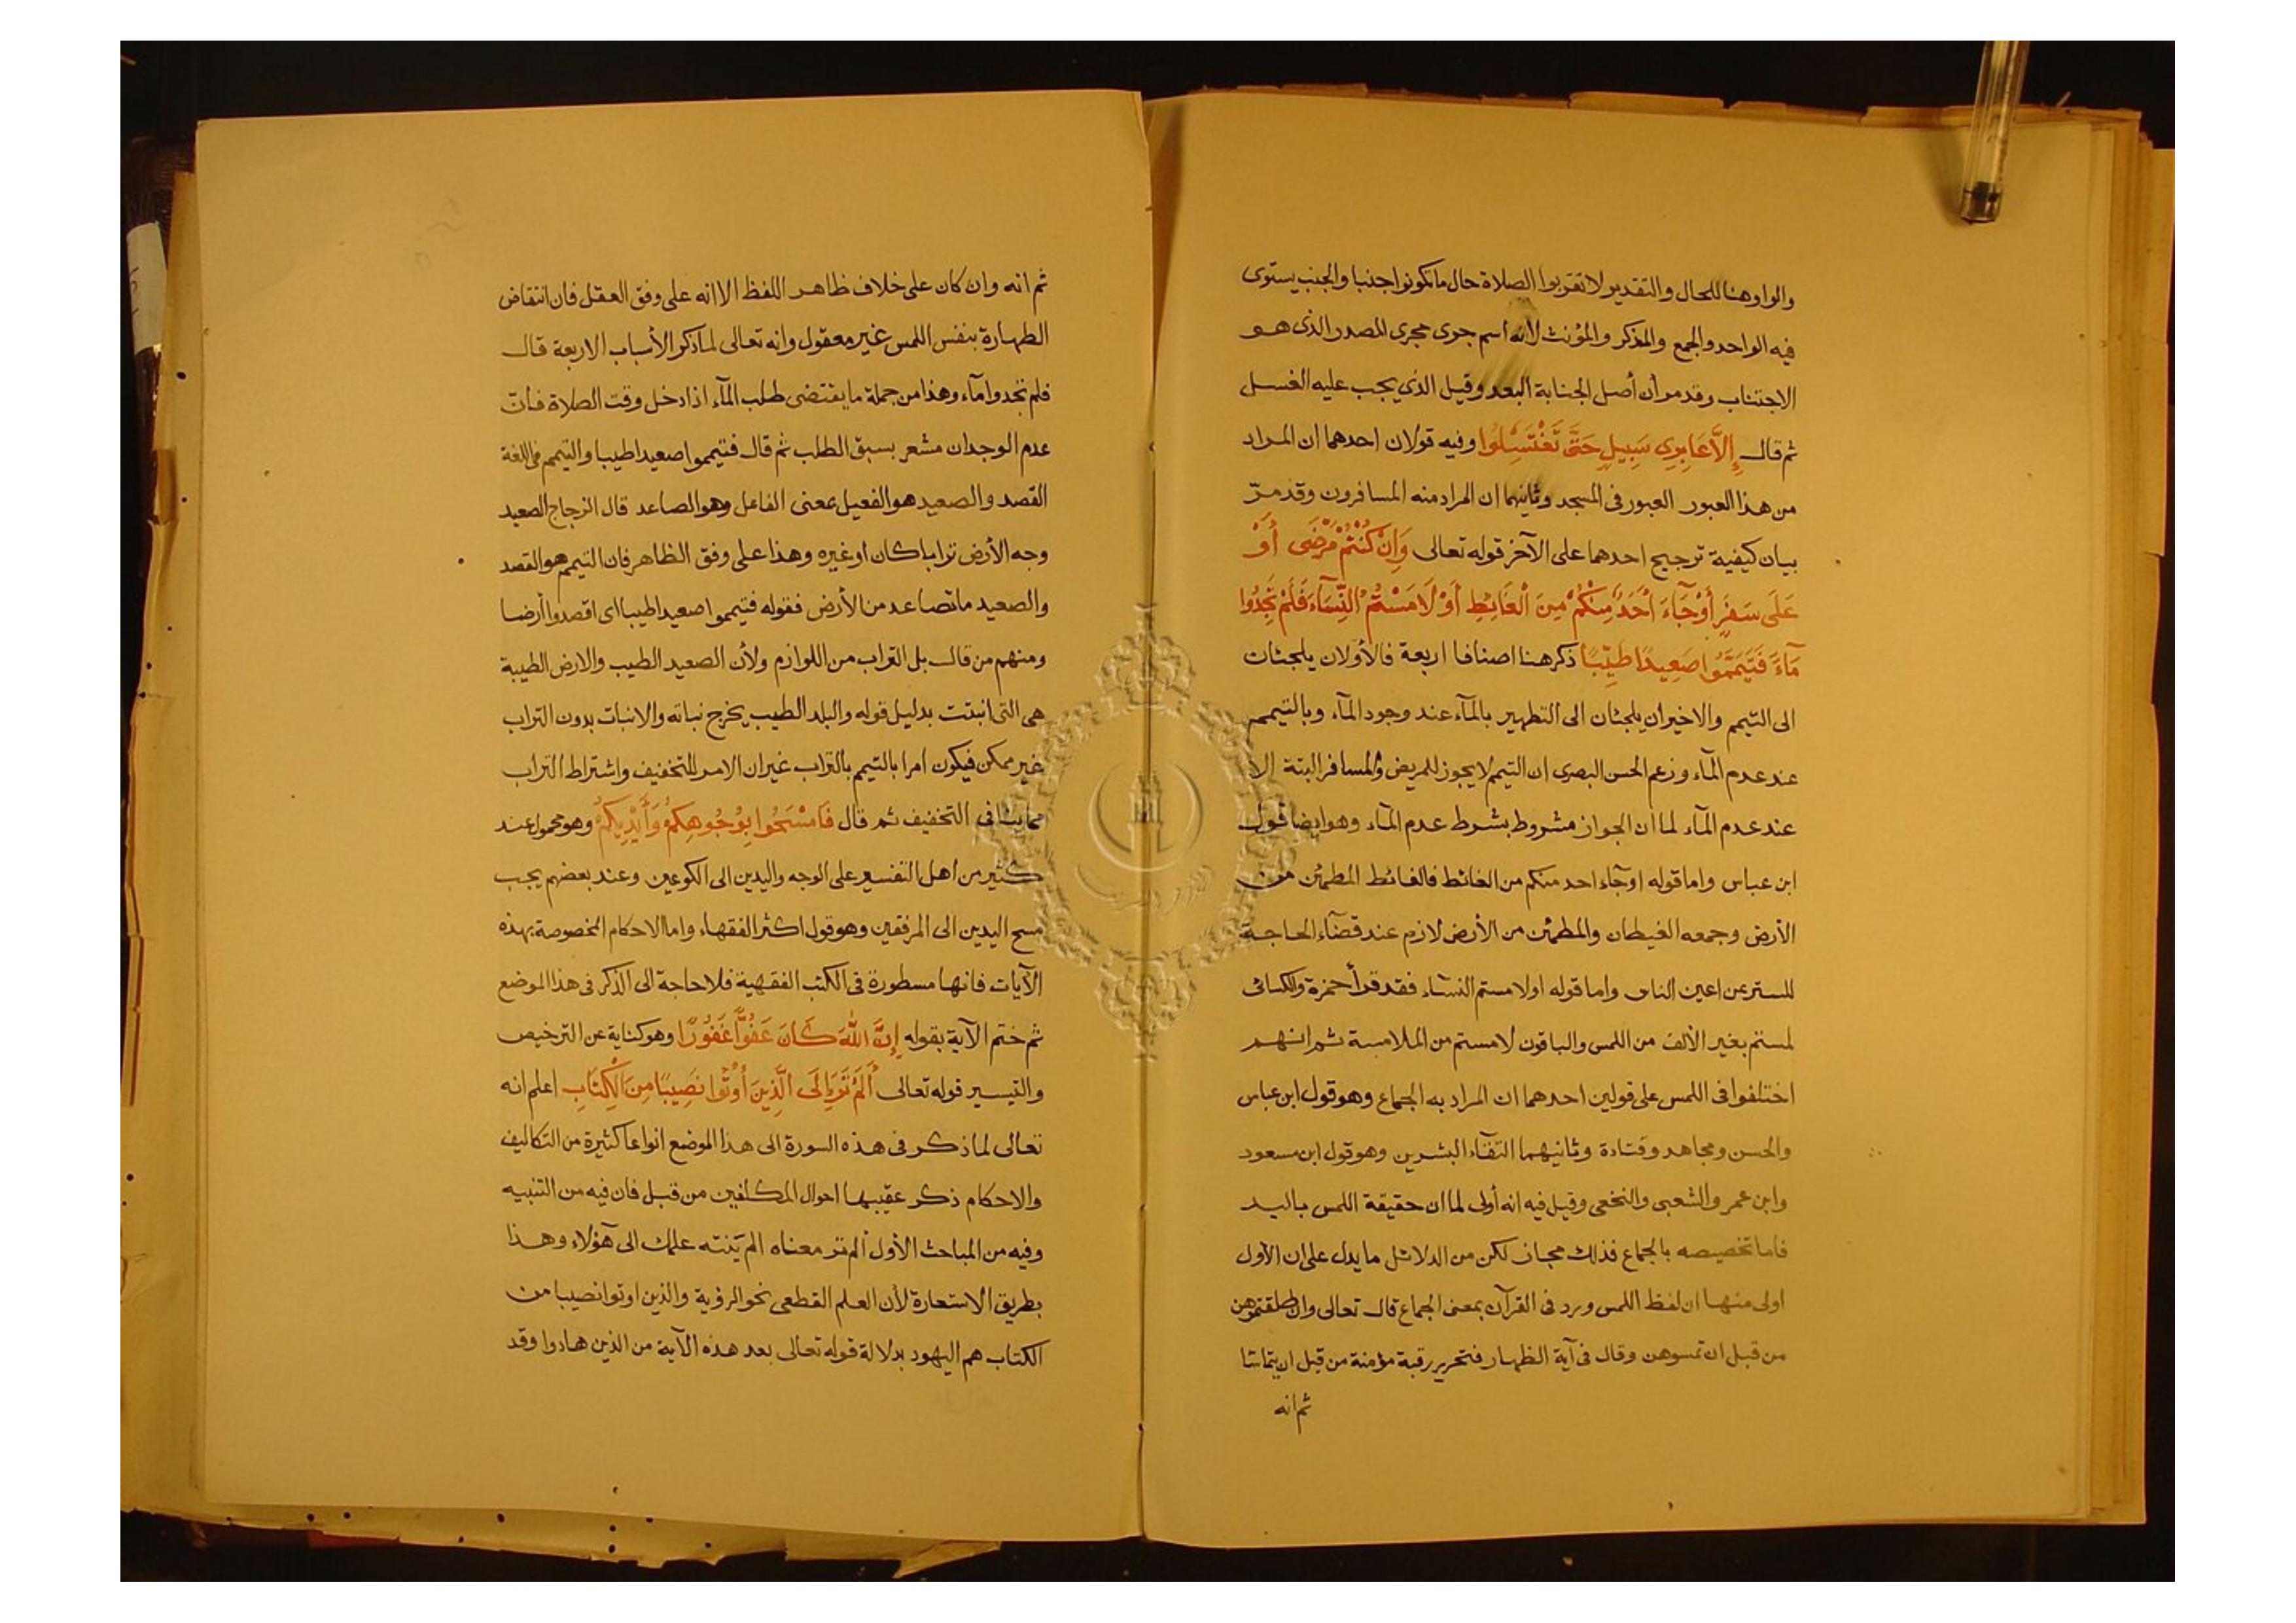 والواو هنا للحال والتقدير لا تقربوا الصلاة حال ما تكونوا جنبا والجنب يستوى
فيه الواحد والجمع والمذكر والمؤنث لانه اسم جرى مجرى المصدر الذى هو
الاجتناب وقد مر أن أصل الجنابة البعد وقيل الذي يجب عليه الغسل
ثم قال إِلَّا عَابِرِي سَبِيلٍ حَتَّى تَغْتَسِلُوا وفيه قولان احدهما ان المراد
من هذا العبور العبور فى المسجد وثانيهما ان المراد منه المسافرون وقد مرّ
بيان كيفية ترجيح احدهما على الآخر قوله تعالى وَإِنْ كُنْتُمْ مَرْضَى أَوْ
عَلَى سَفَرٍ أَوْ جَآءَ أَحَدٌ مِنْكُمْ مِنَ الْغَائِطِ أَوْ لَامَسْتُمُ النِّسَآءَ فَلَمْ تَجِدُوا
مَآءً فَتَيَمَّمُوا صَعِيدًا طَيِّبًا ذكر هنا اصنافا اربعة فالأولان يلجئان
الى التيمم والاخيران يلجئان الى التطهير بالمآء عند وجود المآء وبالتيمم
عند عدم المآء وزعم الحسن البصرى ان التيمم لا يجوز للمريض والمسافر البتة الا
عند عدم المآء لما ان الجواز مشروط بشرط عدم المآء وهو ايضا قول
ابن عباس واما قوله اوجآء احد منكم من الغائط فالغائط المطمئن من
الأرض وجمعه الغيطان والمطمئن من الأرض لازم عند قضآء الحاجة
للستر عن اعين الناس واما قوله اولامستم النسآء فقد قرأ حمزة والكسائى
لمستم بغير الألف من اللمس والباقون لامستم من الملامسة ثم انهم
اختلفوا فى اللمس على قولين احدهما ان المراد به الجماع وهو قول ابن عباس
والحسن ومجاهد وقتادة وثانيهما التقآء البشرين وهو قول ابن مسعود
وابن عمر والشعبى والنخعى وقيل فيه انه أولى لما ان حقيقة اللمس باليد
فاما تخصيصه بالجماع فذلك مجاز لكن من الدلائل ما يدل على ان الأول
اولى منها ان لفظ اللمس ورد فى القرآن بمعنى الجماع قال تعالى وان طلقتموهن
من قبل ان تمسوهن وقال فى آية الظهار فتحرير رقبة مؤمنة من قبل ان يتماسا
ثم انه
ثم انه وان كان على خلاف ظاهر اللفظ الا انه على وفق العقل فان انتقاض
الطهارة بنفس اللمس غير معقول وانه تعالى لما ذكر الأسباب الاربعة قال
فلم تجدوا مآء وهذا من جملة ما يقتضى طلب المآء اذا دخل وقت الصلاة فانّ
عدم الوجدان مشعر بسبق الطلب ثم قال فتيمموا صعيدا طيبا والتيمم فى اللغة
القصد والصعيد هو الفعيل بمعنى الفاعل وهو الصاعد قال الزجاج الصعيد
وجه الأرض ترابا كان اوغيره وهذا على وفق الظاهر فان التيمم هو القصد
والصعيد ما تصاعد من الأرض فقوله فتيمموا صعيدا طيبا اى اقصدوا أرضا
ومنهم من قال بل التراب من اللوازم ولأن الصعيد الطيب والارض الطيبة
هى التى انبتت بدليل قوله والبلد الطيب يخرج نباته والانبات بدون التراب
غير ممكن فيكون امرا بالتيمم بالتراب غير ان الامر للتخفيف واشتراط التراب
مما ينافى التخفيف ثم قال فَامْسَحُوا بِوُجُوهِكُمْ وَأَيْدِيكُمْ وهو محمول عند
كثير من اهل التفسير على الوجه واليدين الى الكوعين وعند بعضهم يجب
مسح اليدين الى المرفقين وهو قول اكثر الفقهاء واما الاحكام المخصوصة بهذه
الآيات فانها مسطورة فى الكتب الفقهية فلا حاجة الى الذكر فى هذا الموضع
ثم ختم الآية بقوله إِنَّ اللَّهَ كَانَ عَفُوًّا غَفُورًا وهو كناية عن الترخيص
والتيسير قوله تعالى أَلَمْ تَرَ إِلَى الَّذِينَ أُوتُوا نَصِيبًا مِنَ الْكِتَابِ اعلم انه
تعالى لما ذكر فى هذه السورة الى هذا الموضع انواعا كثيرة من التكاليف
والاحكام ذكر عقيبها احوال المكلفين من قبل فان فيه من التنبيه
وفيه من المباحث الأول ألم تر معناه الم ينته علمك الى هؤلاء وهذا
بطريق الاستعارة لأن العلم القطعى نحو الرؤية والذين اوتوا نصيبا من
الكتاب هم اليهود بدلالة قوله تعالى بعد هذه الآية من الذين هادوا وقد